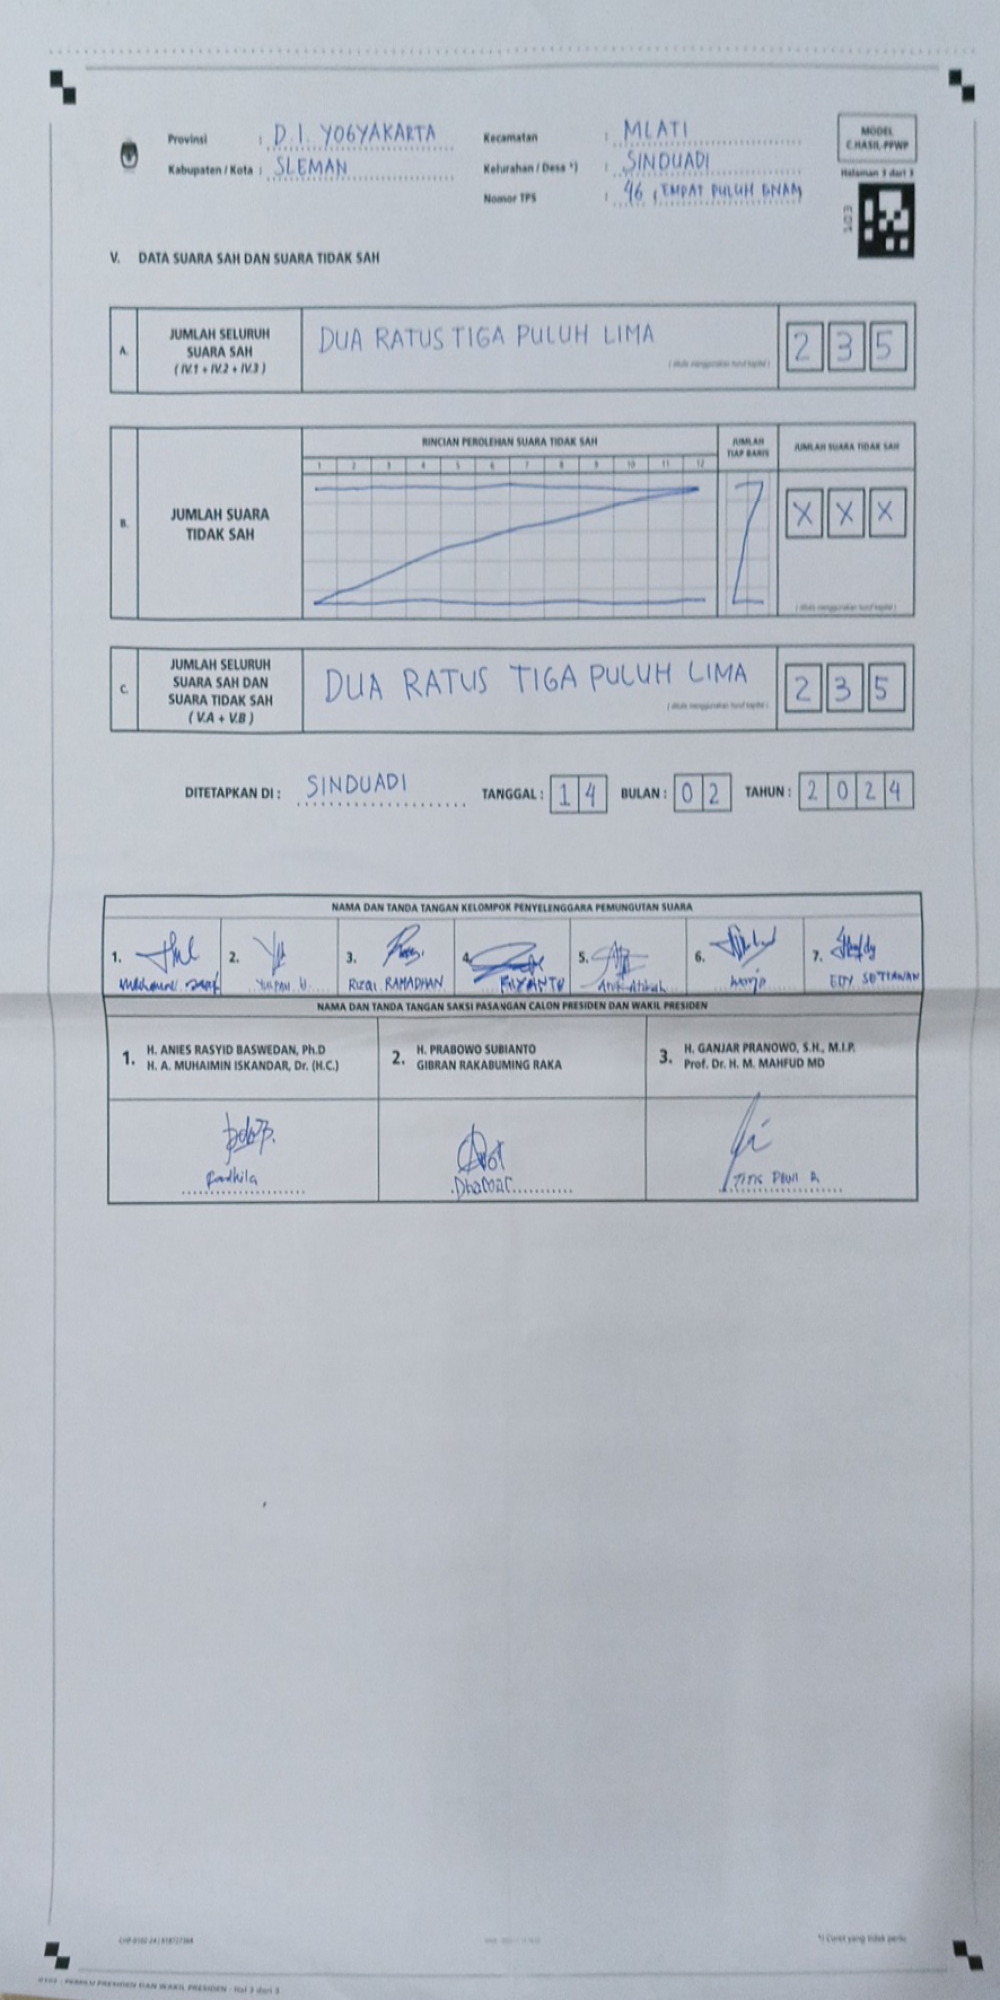 Provinsi : D.I. YOGYAKARTA
Kabupaten / Kota : SLEMAN
Kecamatan : MLATI
Kelurahan / Desa *) : SINDUADI
Nomor TPS : 46 (EMPAT PULUH ENAM
MODEL
C.HASIL-PPWP
Halaman 3 dari 3
103
V. DATA SUARA SAH DAN SUARA TIDAK SAH
A.
JUMLAH SELURUH
SUARA SAH
( IV.1 + IV.2 + IV.3 )
DUA RATUS TIGA PULUH LIMA
( ditulis menggunakan huruf kapital )
2 3 5
B.
JUMLAH SUARA
TIDAK SAH
RINCIAN PEROLEHAN SUARA TIDAK SAH
1 2 3 4 5 6 7 8 9 10 11 12
JUMLAH
TIAP BARIS
JUMLAH SUARA TIDAK SAH
X X X
( ditulis menggunakan huruf kapital )
C.
JUMLAH SELURUH
SUARA SAH DAN
SUARA TIDAK SAH
( V.A + V.B )
DUA RATUS TIGA PULUH LIMA
( ditulis menggunakan huruf kapital )
2 3 5
DITETAPKAN DI : SINDUADI TANGGAL : 1 4 BULAN : 0 2 TAHUN : 2 0 2 4
NAMA DAN TANDA TANGAN KELOMPOK PENYELENGGARA PEMUNGUTAN SUARA
1. 2. 3. 4. 5. 6. 7.
RIZQI RAMADHAN
EDY SETIAWAN
NAMA DAN TANDA TANGAN SAKSI PASANGAN CALON PRESIDEN DAN WAKIL PRESIDEN
1. H. ANIES RASYID BASWEDAN, Ph.D
H. A. MUHAIMIN ISKANDAR, Dr. (H.C.)
2. H. PRABOWO SUBIANTO
GIBRAN RAKABUMING RAKA
3. H. GANJAR PRANOWO, S.H., M.I.P.
Prof. Dr. H. M. MAHFUD MD
Fadhila
Dhamar
TITIS DEWI R
*) Coret yang tidak perlu
PEMILU PRESIDEN DAN WAKIL PRESIDEN - Hal 3 dari 3